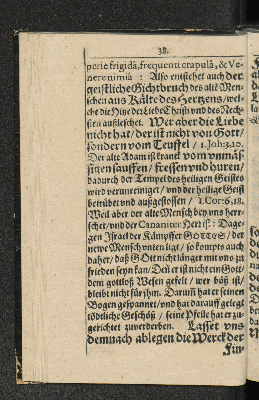 38.
perie frigidâ, frequenti crapulâ, & Ve-
nere nimiâ: Also entstehet auch der
geistliche Gichtbruch des alte Men-
schen aus Kälte des Hertzens/ wel-
che die Hitze der Liebe Christi und des Nech-
sten außleschet. Wer aber die Liebe
nicht hat/ der ist nicht von Gott/
sondern vom Teuffel/ 1. Joh: 3.10.
Der alte Adam ist kranck vom unmäs-
sigen sauffen/ fressen und huren/
dadurch der Tempel des heiligen Geistes
wird verunreiniget/ und der heilige Geist
betrübet und außgestossen/ 1. Cor: 6, 18.
Weil aber der alte Mensch bey uns herr-
schet/ und der Cananiter Herr ist: Dage-
gen Israel der Kämpffer GOTTES/ der
newe Mensch unten ligt/ so kompts auch
daher/ daß GOtt nicht länger mit uns zu
frieden seyn kan/ Deñ er ist nicht ein Gott/
dem gottloß Wesen gefelt/ wer böß ist/
bleibt nicht für jhm. Darumb hat er seinen
Bogen gespannet/ und hat darauff gelegt
tödtliche Geschöß/ seine Pfeile hat er zu-
gerichtet zuverderben. Lasset uns
demnach ablegen die Werck der
Fin-